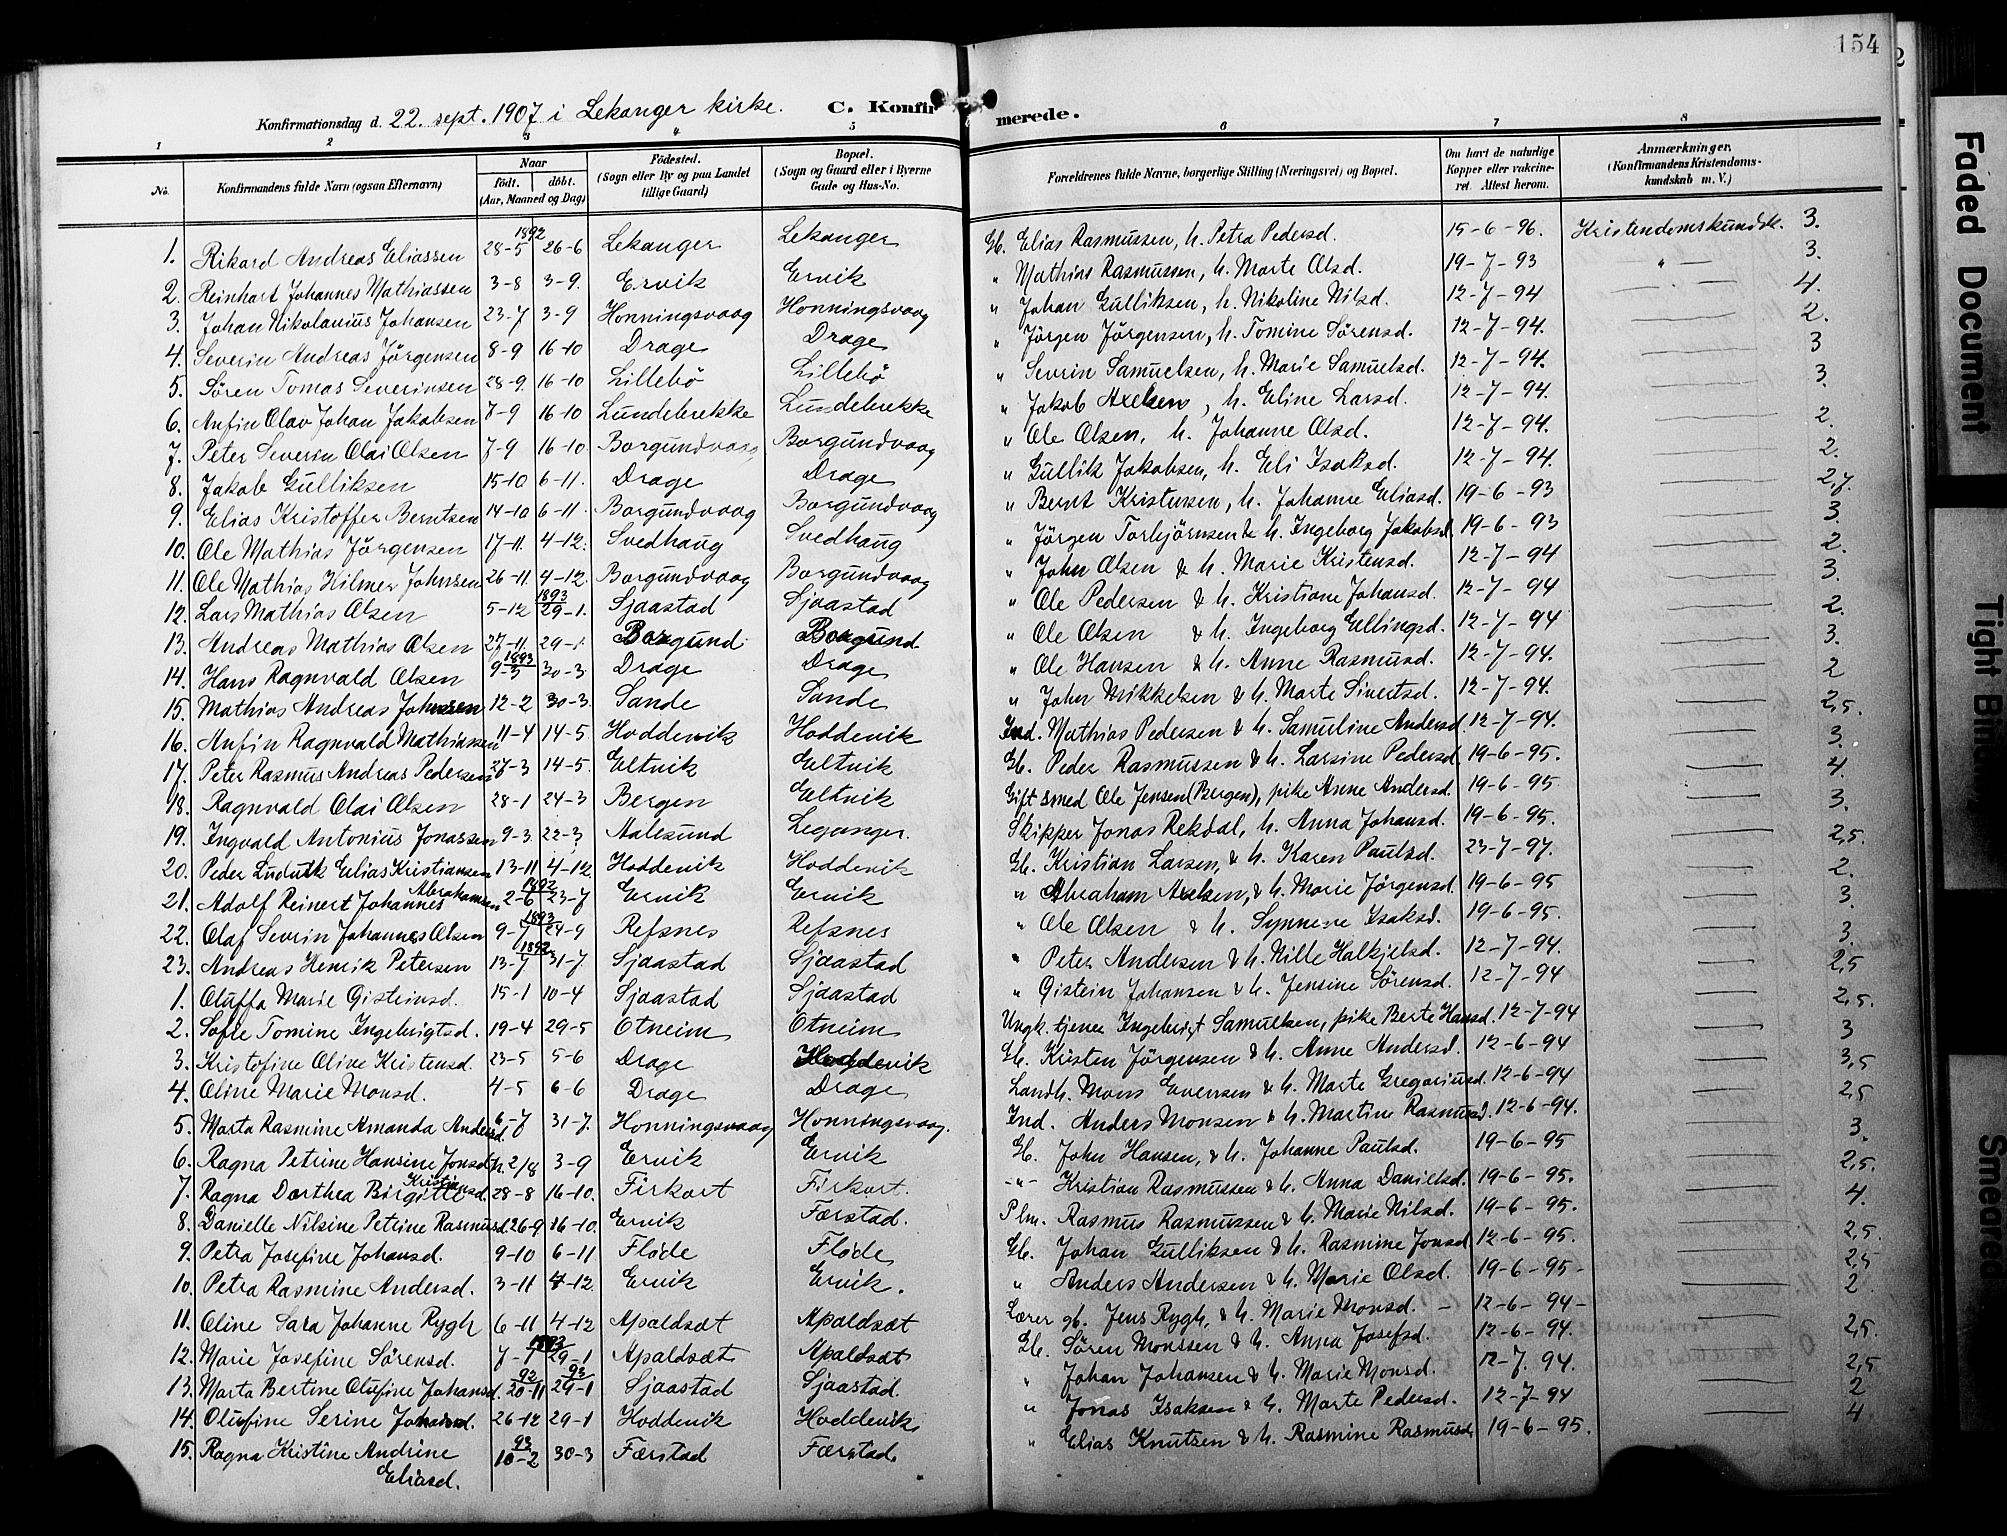 154
Konfirmationsdag d. 22. sept. 1907 i Lekanger kirke. C. Konfirmerede.
1 2 3 4 5 6 7 8
No. Konfirmandens fulde Navn (ogsaa Efternavn) Naar født. døbt. (Aar, Maaned og Dag) Fødested. (Sogn eller By og paa Landet tillige Gaard) Bopæl. (Sogn og Gaard eller i Byerne Gade og Hus-No. Forældrenes fulde Navne, borgerlige Stilling (Næringsvei) og Bopæl. Om havt de naturlige Kopper eller vakcineret. Attest herom. Anmærkninger. (Konfirmandens Kristendomskundskab m. V.)
1892
1. Rikard Andreas Eliassen 28-5 26-6 Lekanger Lekanger Gb. Elias Rasmussen, h. Petra Pedersd. 15-6-96. Kristendomskundsk. 3.
2. Reinhart Johannes Mathiassen 3-8 3-9. Ervik Ervik " Mathias Rasmussen, h. Marte Olsd. 19-7-93 — " — 3.
3. Johan Nikolanius Johansen 23-7 3-9 Honningsvaag Honningsvaag " Johan Gulliksen, h. Nikoline Nilsd. 12-7-94 4.
4. Severin Andreas Jörgensen 8-9 16-10 Drage Drage " Jörgen Jörgensen, h. Tomine Sørensd. 12-7-94. 2.
5. Søren Tomas Severinsen 28-9. 16-10 Lillebø Lillebø " Sevrin Samuelsen, h. Marie Samuelsd. 12-7-94. 3
6. Anfin Olav Johan Jakobsen 7-9 16-10 Lundebrekke Lundebrekke " Jakob Axelsen, h. Eline Larsd. 12-7-94. 3.
7. Peter Severin Olai Olsen 7-9 16-10 Borgundvaag Borgundvaag " Ole Olsen, h. Johanne Olsd. 12-7-94. 2.
8. Jakob Gulliksen 15-10 6-11. Drage Drage " Gullik Jakobsen, h. Eli Isaksd. 12-7-94. 2.
9. Elias Kristoffer Berntsen 14-10 6-11. Borgundvaag Borgundvaag " Bernt Kristensen, h. Johanne Eliasd. 19-6-93 2,7.
10. Ole Mathias Jörgensen 17-11. 4-12. Svedhaug Svedhaug " Jörgen Torbjörnsen & h. Ingeborg Jakobsd. 19-6-93 3.
11. Ole Mathias Hilmer Johnsen 26-11. 4-12. Borgundvaag Borgundvaag " John Olsen & h. Marie Kristensd. 12-7-94 2.
1893
12. Lars Mathias Olsen 5-12 29-1. Sjaastad Sjaastad " Ole Pedersen & h. Kristiane Johansd. 12-7-94 3.
13. Andreas Mathias Olsen 27-11. 29-1. Borgund Borgund " Ole Olsen & h. Ingeborg Ellingsd. 12-7-94 2.
1893
14. Hans Ragnvald Olsen 9-3 30-3 Drage Drage " Ole Hansen & h. Anne Rasmusd. 12-7-94. 3.
15. Mathias Andreas Johnsen 12-2 30-3. Sande Sande " John Mikkelsen & h. Marte Sivertsd. 12-7-94. 2
16. Anfin Ragnvald Mathiassen 11-4 14-5. Hoddevik Hoddevik Ind. Mathias Pedersen & h. Samuline Andersd. 12-7-94. 2,5.
17. Peter Rasmus Andreas Pedersen 27-3 14-5. Eltvik Eltvik Gb. Peder Rasmussen & h. Larsine Pedersd. 19-6-95. 3.
18. Ragnvald Olai Olsen 28-1 24-3 Bergen Eltvik Gift smed Ole Jensen (Bergen), pike Anne Andersd. 19-6-95 4.
19. Ingvald Antonius Jonassen 9-3 22-3 Aalesund Leganger. Skipper Jonas Rekdal, h. Anna Johansd. 19-6-95. 3.
20. Peder Ludvik Elias Kristiansen 13-11 4-12. Hoddevik Hoddevik Gb. Kristian Larsen, & h. Karen Paulsd. 23-7-97. 2,5.
1892
21. Adolf Reinert Johannes Abrahamsen 2-6 23-7 Ervik Ervik " Abraham Axelsen, & h. Marie Jörgensd. 19-6-95 2.
1893
22. Olaf Sevrin Johannes Olsen 9-7 24-9 Refsnes Refsnes " Ole Olsen & h. Synneve Isaksd. 19-6-95. 3.
1892
23. Andreas Henrik Petersen 13-7 31-7. Sjaastad Sjaastad " Peter Andersen & h. Nille Halkjelsd. 12-7-94. 3.
1. Oluffa Marie Gisteinsd. 15-1 10-4 Sjaastad Sjaastad " Gistein Johansen & h. Jensine Sørensd. 12-7-94 2,5
2. Sofie Tomine Ingebrigtsd. 19-4 29-5 Otneim Otneim Ungk. tjener Ingebrigt Samuelsen, pike Berte Hansd. 12-7-94 2,5.
3. Kristofine Oline Kristensd. 23-5 5-6 Drage Hoddevik Gb. Kristen Jörgensen & h. Anne Andersd. 12-6-94 3
4. Oline Marie Monsd. 4-5 6-6 Drage Drage Landh. Mons Evensen & h. Marte Gregoriusd. 12-6-94 3,5
5. Marta Rasmine Amanda Andersd. 6-7 31-7. Honningsvaag Honningsvaag. Ind. Anders Monsen & h. Martine Rasmusd. 12-6-94. 2,5
6. Ragna Petrine Hansine Jonsdtr. 2/8 3-9 Ervik Ervik Gb. John Hansen, & h. Johanne Paulsd. 19-6-95 3.
7. Ragna Dorthea Birgitte Kristiansd. 28-8 16-10. Firkort Firkort. -"- Kristian Rasmussen & h. Anna Danielsd. 19-6-95. 2,5.
8. Danielle Nilsine Petrine Rasmusd. 26-9 16-10. Ervik Færstad. Plm. Rasmus Rasmussen & h. Marie Nilsd. 19-6-95. 4.
9. Petra Josefine Johansd. 9-10 6-11 Fløde Fløde Gb. Johan Gulliksen & h. Rasmine Jonsd. 12-6-95. 2,5.
10. Petra Rasmine Andersd. 3-11 4-12. Ervik Ervik. " Anders Andersen & h. Marie Olsd. 19-6-95- 2,5
11. Oline Sara Johanne Rygh 6-11 4-12 Apaldsæt Apaldsæt Lærer gb. Jens Rygh, & h. Marie Monsd. - 12-6-94- 2
1893
12. Marie Josefine Sørensd. 7-1 29-1 Apaldsæt Apaldsæt Gb. Søren Monssen & h. Anna Josefsd. 12-6-94. 2,5.
92 93
13. Marta Bertine Olufine Johansd. 20-11 29-1 Sjaastad Sjaastad. " Johan Johansen & h. Marie Monsd. 12-7. 94. 2,5
14. Olufine Serine Jonasd. 26-12 29-1 Hoddevik Hoddevik " Jonas Isaksen & h. Marte Pedersd. 12-7-94 2
93
15. Ragna Kristine Andrine Eliasd. 10-2 30-3 Færstad Færstad. " Elias Knutsen & h. Rasmine Rasmusd. 19-6-95. 4
Faded Document
Tight Bin
Smeared